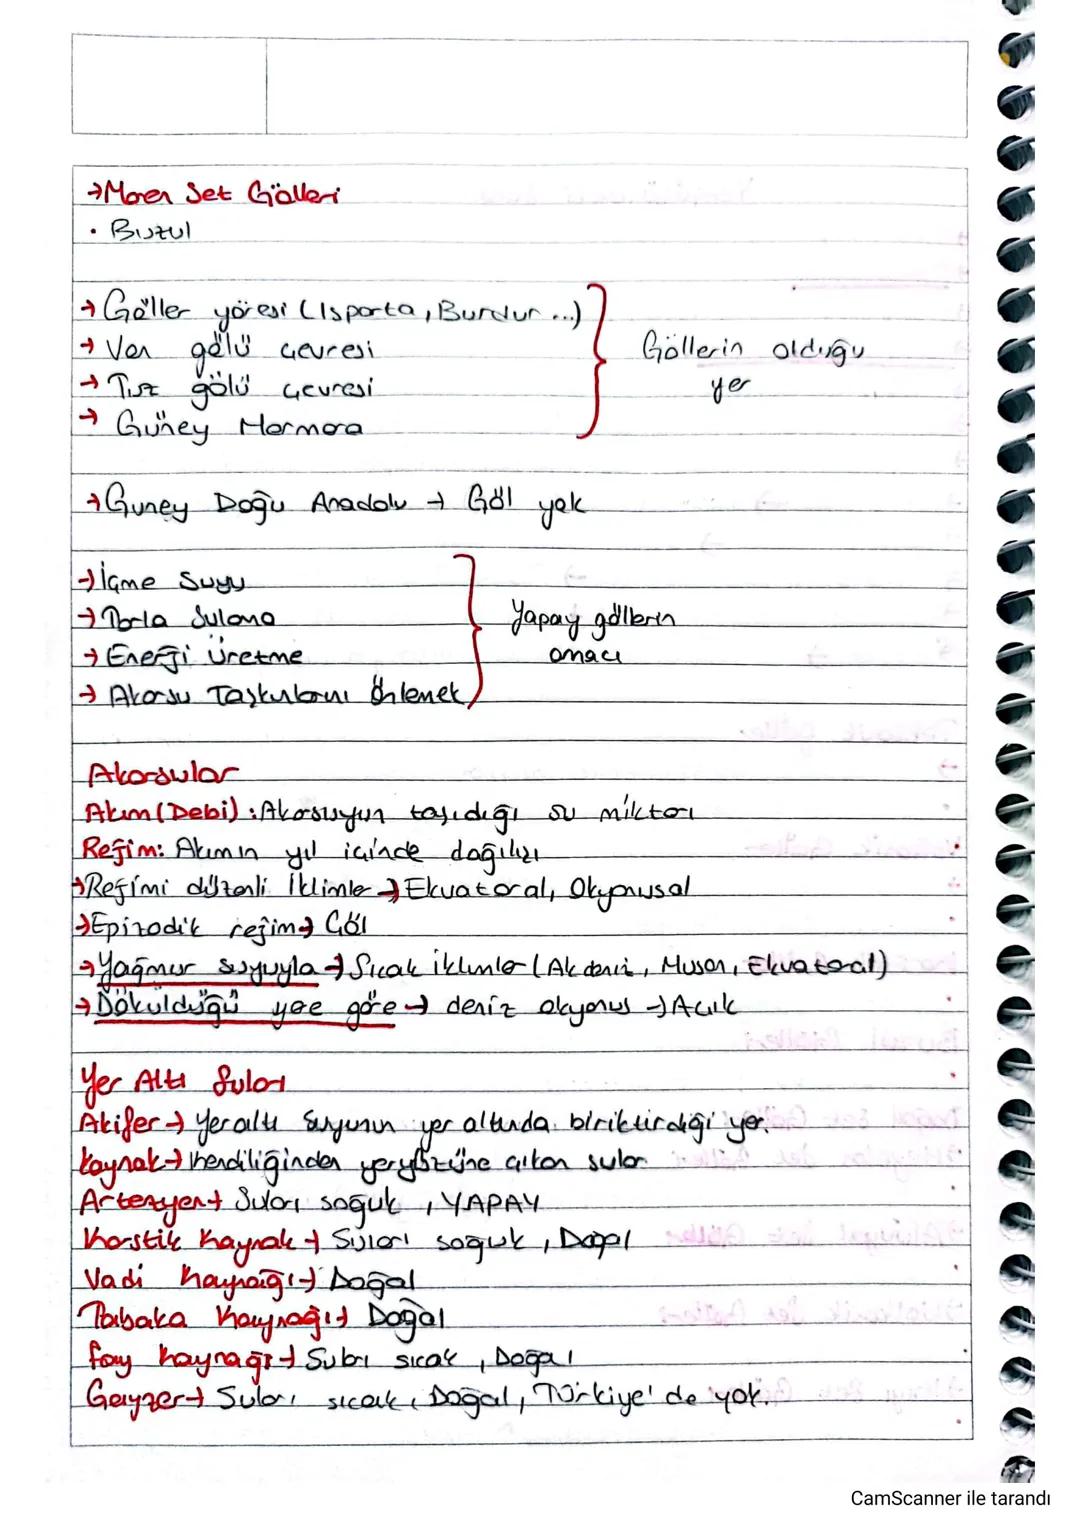 →Moren Set Gölleri
• Buzul
→Göller yöresi (Isparta, Burdur ...)
→ Van gölü çevresi
→ Tuz gölü çevresi
→ Güney Marmara
Göllerin olduğu
yer
→Guney Doğu Anadolu → Göl yok
→İçme Suyu
→Tarla Sulama
→ Enerji Üretme
→ Akarsu Taşkınlarını Önlemek
Yapay göllerin
amacı
Akarsular
Akım (Debi) : Akarsuyun taşıdığı su miktarı
Rejim: Akımın yıl içinde dağılışı
→Rejimi düzenli İklimler → Ekvatoral, Okyanusal
→Epizodik rejim→ Çöl
→Yağmur suyuyla → Sıcak iklimler (Akdeniz, Muson, Ekvatoral)
→Döküldüğü yere göre → deniz okyanus → Açık
Yer Altı Suları
Akifer → Yeraltı Suyunun yer altında biriktirdiği yer.
Kaynak → Kendiliğinden yeryüzüne çıkan sular
Artezyen→ Suları soğuk, YAPAY
Karstik Kaynak → Suları soğuk, Doğal
Vadi Kaynağı→ Doğal
Tabaka Kaynağı→ Doğal
fay kaynağı→ Suları sıcak, Doğal
Gayzer→ Suları sıcak, Doğal, Türkiye'de yok.
CamScanner ile tarandı